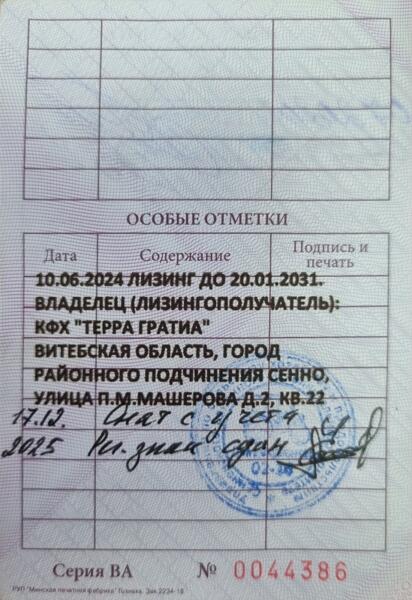 ОСОБЫЕ ОТМЕТКИ
Дата Содержание Подпись и печать
10.06.2024 ЛИЗИНГ ДО 20.01.2031.
ВЛАДЕЛЕЦ (ЛИЗИНГОПОЛУЧАТЕЛЬ):
КФХ "ТЕРРА ГРАТИА"
ВИТЕБСКАЯ ОБЛАСТЬ, ГОРОД
РАЙОННОГО ПОДЧИНЕНИЯ СЕННО,
УЛИЦА П.М.МАШЕРОВА Д.2, КВ.22
17.12. Снят с учета
2025 Рег. знак сдан
Серия ВА № 0044386
РУП "Минская печатная фабрика" Гознака. Зак. 2234-18